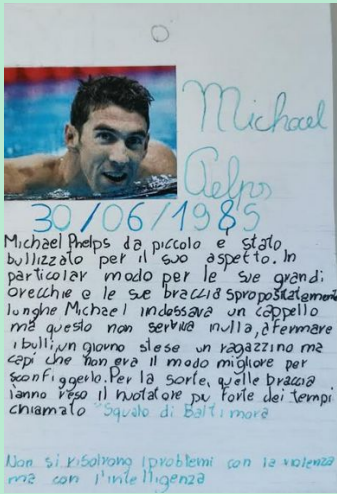 Michael
Felps
30/06/1985
Michael Phelps da piccolo è stato
bullizzato per il suo aspetto. In
particolar modo per le sue grandi
orecchie e le sue braccia spropositatamente
lunghe Michael indossava un cappello
ma questo non serviva nulla, a fermare
i bulli, un giorno stese un ragazzino ma
capì che non era il modo migliore per
sconfiggerlo. Per la sorte, quelle braccia
ianno reso il nuotatore pu forte dei tempi
chiamato "Squalo di Baltimora
Non si risolvono i problemi con la violenza
ma con l'intelligenza